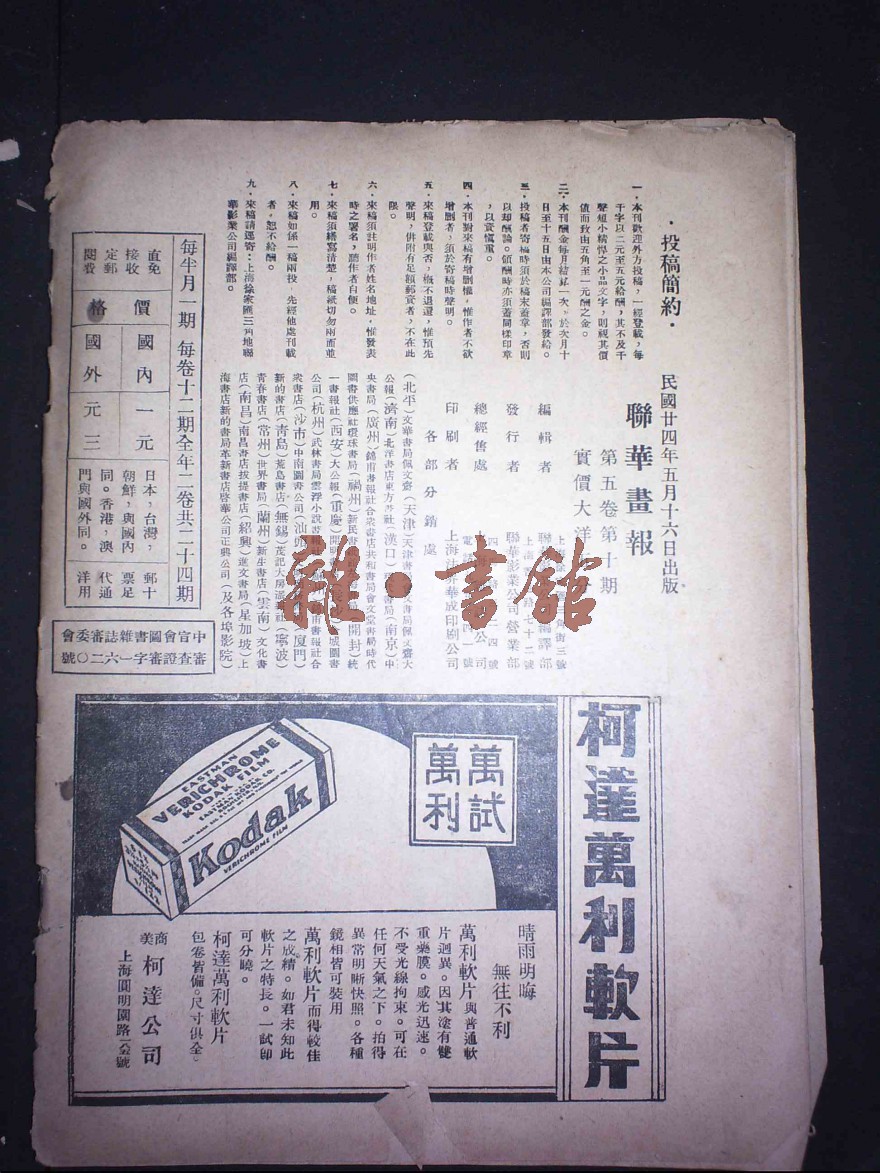 ·投稿簡約·
一·本刊歡迎外方投稿,一經登載,每
千字以二元至五元給酬,其不及千
聲短小精悍之小品文字,則視其價
値而致由五角至一元酬之金。
二·本刊酬金每月結算一次,於次月十
日至十五日由本公司編譯部發給。
三·投稿者寄稿時須於稿末蓋章,否則
以却酬論。領酬時亦須蓋同樣印章
,以資愼重。
四·本刊對來稿有增删權,惟作者不欲
增删者,須於寄稿時聲明。
五·來稿登載與否,槪不退還,惟預先
聲明,併附有足額郵資者,不在此
限。
六·來稿須註明作者姓名地址,惟發表
時之署名,聽作者自便。
七·來稿須繕寫清楚,稿紙切勿兩面並
用。
八·來稿如係一稿兩投,先經他處刊載
者,恕不給酬。
九·來稿請逕寄:上海徐家匯三角地聯
華影業公司編譯部。
民國廿四年五月十六日出版
聯華畫報
第五卷第十期
實價大洋
編輯者
發行者 聯華影業公司營業部
總經售處
印刷者 上海法界華成印刷公司
各部分銷處
(北平)文華書局佩文齋(天津)天津書局佩文齋大
公報(濟南)北洋書店東方書社(漢口)書局(南京)中
央書局(廣州)錦甫書報社合衆書店共和書局會文堂書局時代
圖書供應社環球書局(福州)新民書(開封)統
一書報社(西安)大公報(重慶)開明書城圖書
公司(杭州)武林書局雲浮小說書報社南書報社合
衆書店(沙市)中南圖書公司(汕頭)(厦門)
新的書店(靑島)荒島書店(無錫)茂記大房(寧波)
靑春書店(常州)世界書局(蘭州)新生書店(雲南)文化書
店(南昌)南昌書店拔提書店(紹興)進文書局(星加坡)上
海書店新的書局革新書店啓華公司正興公司(及各埠影院)
每半月一期 每卷十二期全年二卷共二十四期
直接定閱
免收郵費
價格
國內 一元
國外 元三
日本,台灣,
朝鮮,與國內
同。香港,澳
門與國外同。
郵票代洋
十足通用
中宣會圖書雜誌審委會
審查證審字一六二〇號
雜·書館
柯達萬利軟片
萬試
萬利
EASTMAN
VERICHROME
KODAK FILM
EASTMAN KODAK CO.
Kodak
VERICHROME FILM
晴雨明晦
無往不利
萬利軟片與普通軟
片迥異。因其塗有雙
重藥膜。感光迅速。
不受光線拘束。可在
任何天氣之下。拍得
異常明晰快照。各種
鏡相皆可裝用
萬利軟片而得較佳
之成績。如君未知此
軟片之特長。一試卽
可分曉。
柯達萬利軟片
包卷皆備。尺寸俱全。
美商 柯達公司
上海圓明園路